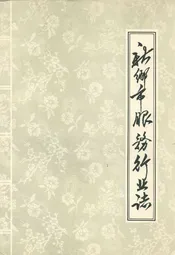 新乡市服务行业志